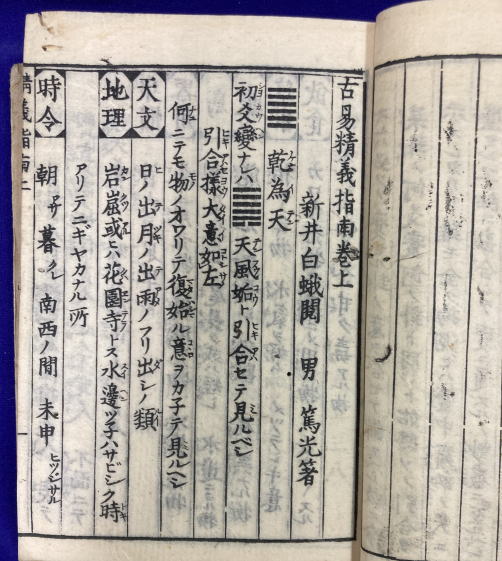 古易精義指南巻上
新井白蛾閲 男 篤光著
乾為天
初爻變ナレハ 天風姤ト引合セテ見ルベシ
引合様大意如左
何ニテモ物ノオワリテ復始ル意ヲカ子テ見ルベシ
天文
日ノ出月ノ出雨ノフリ出シノ類
地理
岩屈或ハ花園寺トス水邊ツ子ハサビシク時
アリテニギヤカナル所
時令
朝 暮 南西ノ間 未申 ヒツジサル
精義指南上